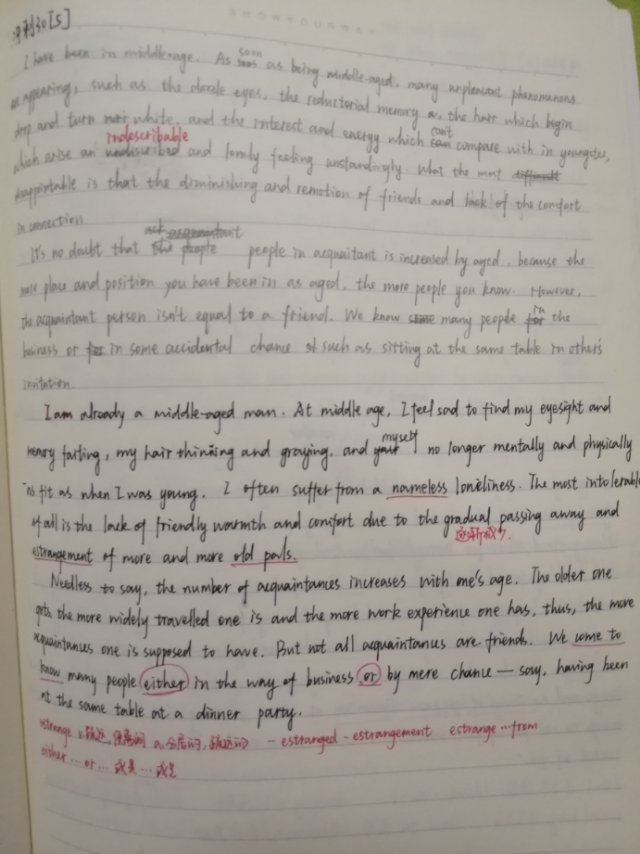 SHOWYOURWAY
冲刺30[5]
I have been in middle-age. As soon as being middle-aged, many unpleasant phenomenons
appearing, such as the dark eyes, the reductorial memory, the hair which begin
drop and turn white, and the interest and energy which can't compare with in youngster,
which arise an indescribable and lonely feeling unstandingly. What the most
disappointable is that the diminishing and remotion of friends and lack of the comfort
in connection
It's no doubt that people in acquaitant is increased by aged, because the
more place and position you have been in as aged, the more people you know. However,
the acquaintant person isn't equal to a friend. We know many people in the
business or in some accidental chance such as sitting at the same table in other's
invitation.
I am already a middle-aged man. At middle age, I feel sad to find my eyesight and
memory failing, my hair thinning and graying, and myself no longer mentally and physically
as fit as when I was young. I often suffer from a nameless loneliness. The most intolerable
of all is the lack of friendly warmth and comfort due to the gradual passing away and
逐渐减少.
estrangement of more and more old pals.
Needless to say, the number of acquaintances increases with one's age. The older one
gets, the more widely travelled one is and the more work experience one has, thus, the more
acquaintances one is supposed to have. But not all acquaintances are friends. We come to
know many people either in the way of business or by mere chance — say, having been
at the same table at a dinner party.
estrange v.疏远, 使离间 a.分居的, 疏远的 - estranged - estrangement estrange … from
either … or … 或是 … 或是